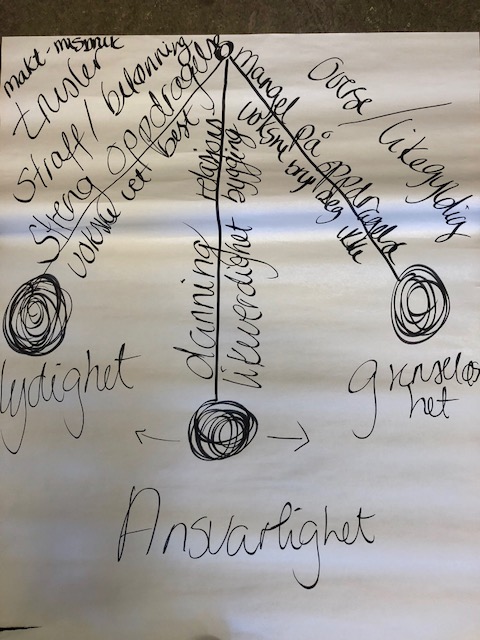 makt-misbruk
trusler
Straff/belønning
Streng oppdragelse
voksne vet best
danning
relasjons
bygging
likeverdighet
mangel på oppdragelse
voksne bryr deg ikke
Overse/likegyldig
lydighet
grenseløs
het
Ansvarlighet